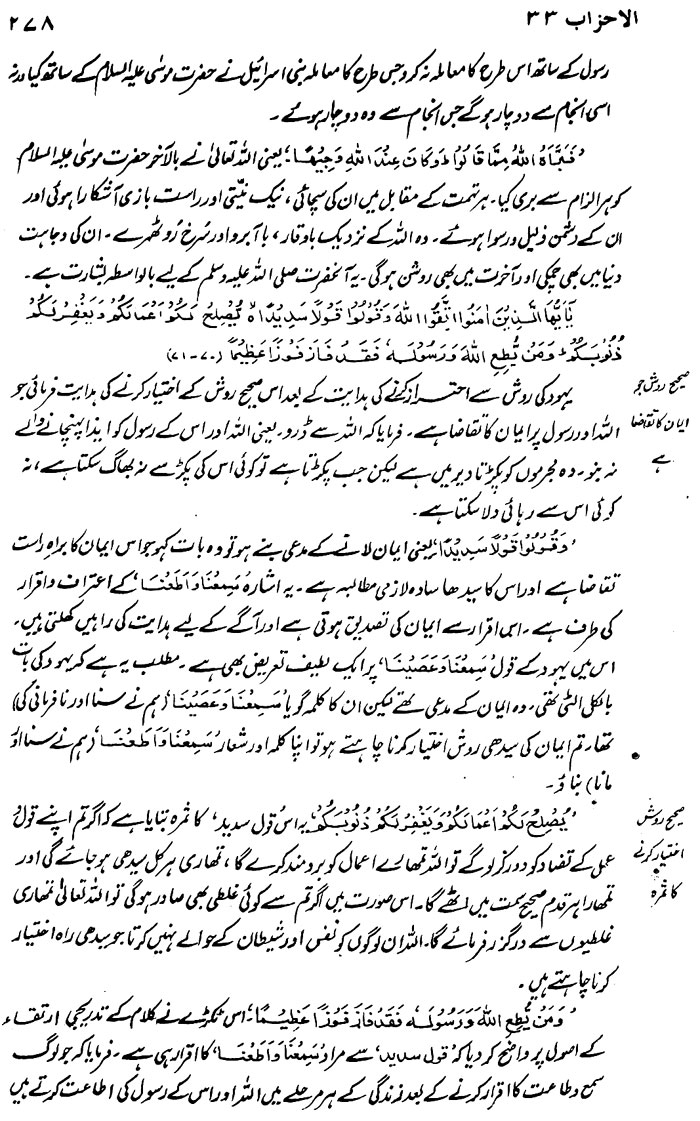 الاحزاب ۳۳
۲۷۸
رسول کے ساتھ اس طرح کا معاملہ نہ کرو جس طرح کا معاملہ بنی اسرائیل نے حضرت موسیٰ علیہ السلام کے ساتھ کیا ورنہ
اسی انجام سے دوچار ہوگے جس انجام سے وہ دوچار ہوئے۔
'فَبَرَّاَهُ اللهُ مِمَّا قَالُوْا ؕ وَكَانَ عِنْدَ اللهِ وَجِيْهًا' یعنی اللہ تعالیٰ نے بالآخر حضرت موسیٰ علیہ السلام
کو ہر الزام سے بری کیا۔ ہر تہمت کے مقابل میں ان کی سچائی، نیک نیتی اور راست بازی آشکارا ہوئی اور
ان کے دشمن ذلیل و رسوا ہوئے۔ وہ اللہ کے نزدیک باوقار، باآبرو اور سُرخ رُو ٹھہرے۔ ان کی وجاہت
دنیا میں بھی چمکی اور آخرت میں بھی روشن ہوگی۔ یہ آنحضرت صلی اللہ علیہ وسلم کے لیے بالواسطہ بشارت ہے۔
يٰۤاَيُّهَا الَّذِيْنَ اٰمَنُوا اتَّقُوا اللهَ وَقُوْلُوْا قَوْلًا سَدِيْدًا ۙ يُّصْلِحْ لَكُمْ اَعْمَالَكُمْ وَيَغْفِرْ لَكُمْ
ذُنُوْبَكُمْ ؕ وَمَنْ يُّطِعِ اللهَ وَرَسُوْلَهٗ فَقَدْ فَازَ فَوْزًا عَظِيْمًا (۷۰-۷۱)
صحیح روش جو
ایمان کا تقاضا
ہے
یہود کی روش سے احتراز کرنے کی ہدایت کے بعد اس صحیح روش کے اختیار کرنے کی ہدایت فرمائی جو
اللہ اور رسول پر ایمان کا تقاضا ہے۔ فرمایا کہ اللہ سے ڈرو۔ یعنی اللہ اور اس کے رسول کو ایذا پہنچانے والے
نہ بنو۔ وہ مجرموں کو پکڑتا دیر میں ہے لیکن جب پکڑتا ہے تو کوئی اس کی پکڑ سے نہ بھاگ سکتا ہے، نہ
کوئی اس سے رہائی دلا سکتا ہے۔
'وَقُوْلُوْا قَوْلًا سَدِيْدًا' یعنی ایمان لانے کے مدعی بنے ہو تو وہ بات کہو جو اس ایمان کا براہِ راست
تقاضا ہے اور اس کا سیدھا سادہ لازمی مطالبہ ہے۔ یہ اشارہ 'سَمِعْنَا وَاَطَعْنَا' کے اعتراف و اقرار
کی طرف ہے۔ اس اقرار سے ایمان کی تصدیق ہوتی ہے اور آگے کے لیے ہدایت کی راہیں کھلتی ہیں۔
اس میں یہود کے قول 'سَمِعْنَا وَعَصَيْنَا' پر ایک لطیف تعریض بھی ہے۔ مطلب یہ ہے کہ یہود کی بات
بالکل الٹی تھی۔ وہ ایمان کے مدعی تھے لیکن ان کا کلمہ گویا 'سَمِعْنَا وَعَصَيْنَا' (ہم نے سنا اور نافرمانی کی)
تھا۔ تم ایمان کی سیدھی روش اختیار کرنا چاہتے ہو تو اپنا کلمہ اور شعار 'سَمِعْنَا وَاَطَعْنَا' (ہم نے سنا اور
مانا) بناؤ۔
صحیح روش
اختیار کرنے
کا ثمرہ
'يُصْلِحْ لَكُمْ اَعْمَالَكُمْ وَيَغْفِرْ لَكُمْ ذُنُوْبَكُمْ' یہ اس 'قول سدید' کا ثمرہ بتایا ہے کہ اگر تم اپنے قول و
عمل کے تضاد کو دور کر لو گے تو اللہ تمھارے اعمال کو برومند کرے گا، تمھاری ہر کل سیدھی ہو جائے گی اور
تمھارا ہر قدم صحیح سمت میں اٹھے گا۔ اس صورت میں اگر تم سے کوئی غلطی بھی صادر ہوگی تو اللہ تعالیٰ تمھاری
غلطیوں سے درگزر فرمائے گا۔ اللہ ان لوگوں کو نفس اور شیطان کے حوالے نہیں کرتا جو سیدھی راہ اختیار
کرنا چاہتے ہیں۔
'وَمَنْ يُّطِعِ اللهَ وَرَسُوْلَهٗ فَقَدْ فَازَ فَوْزًا عَظِيْمًا' اس ٹکڑے نے کلام کے تدریجی ارتقاء
کے اصول پر واضح کر دیا کہ 'قول سدید' سے مراد 'سَمِعْنَا وَاَطَعْنَا' کا اقرار ہی ہے۔ فرمایا کہ جو لوگ
سمع و طاعت کا اقرار کرنے کے بعد زندگی کے ہر مرحلے میں اللہ اور اس کے رسول کی اطاعت کرتے ہیں